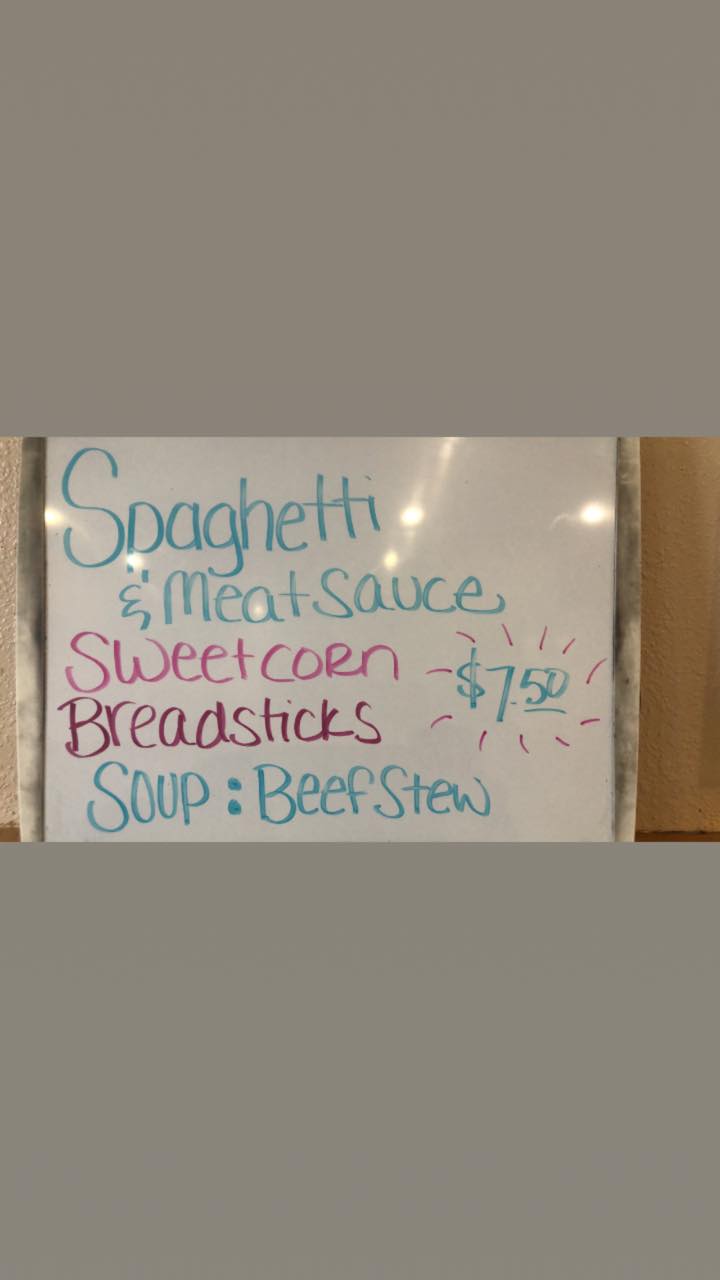 Spaghetti
& Meat Sauce
Sweet corn
$7.50
Breadsticks
Soup: Beef Stew